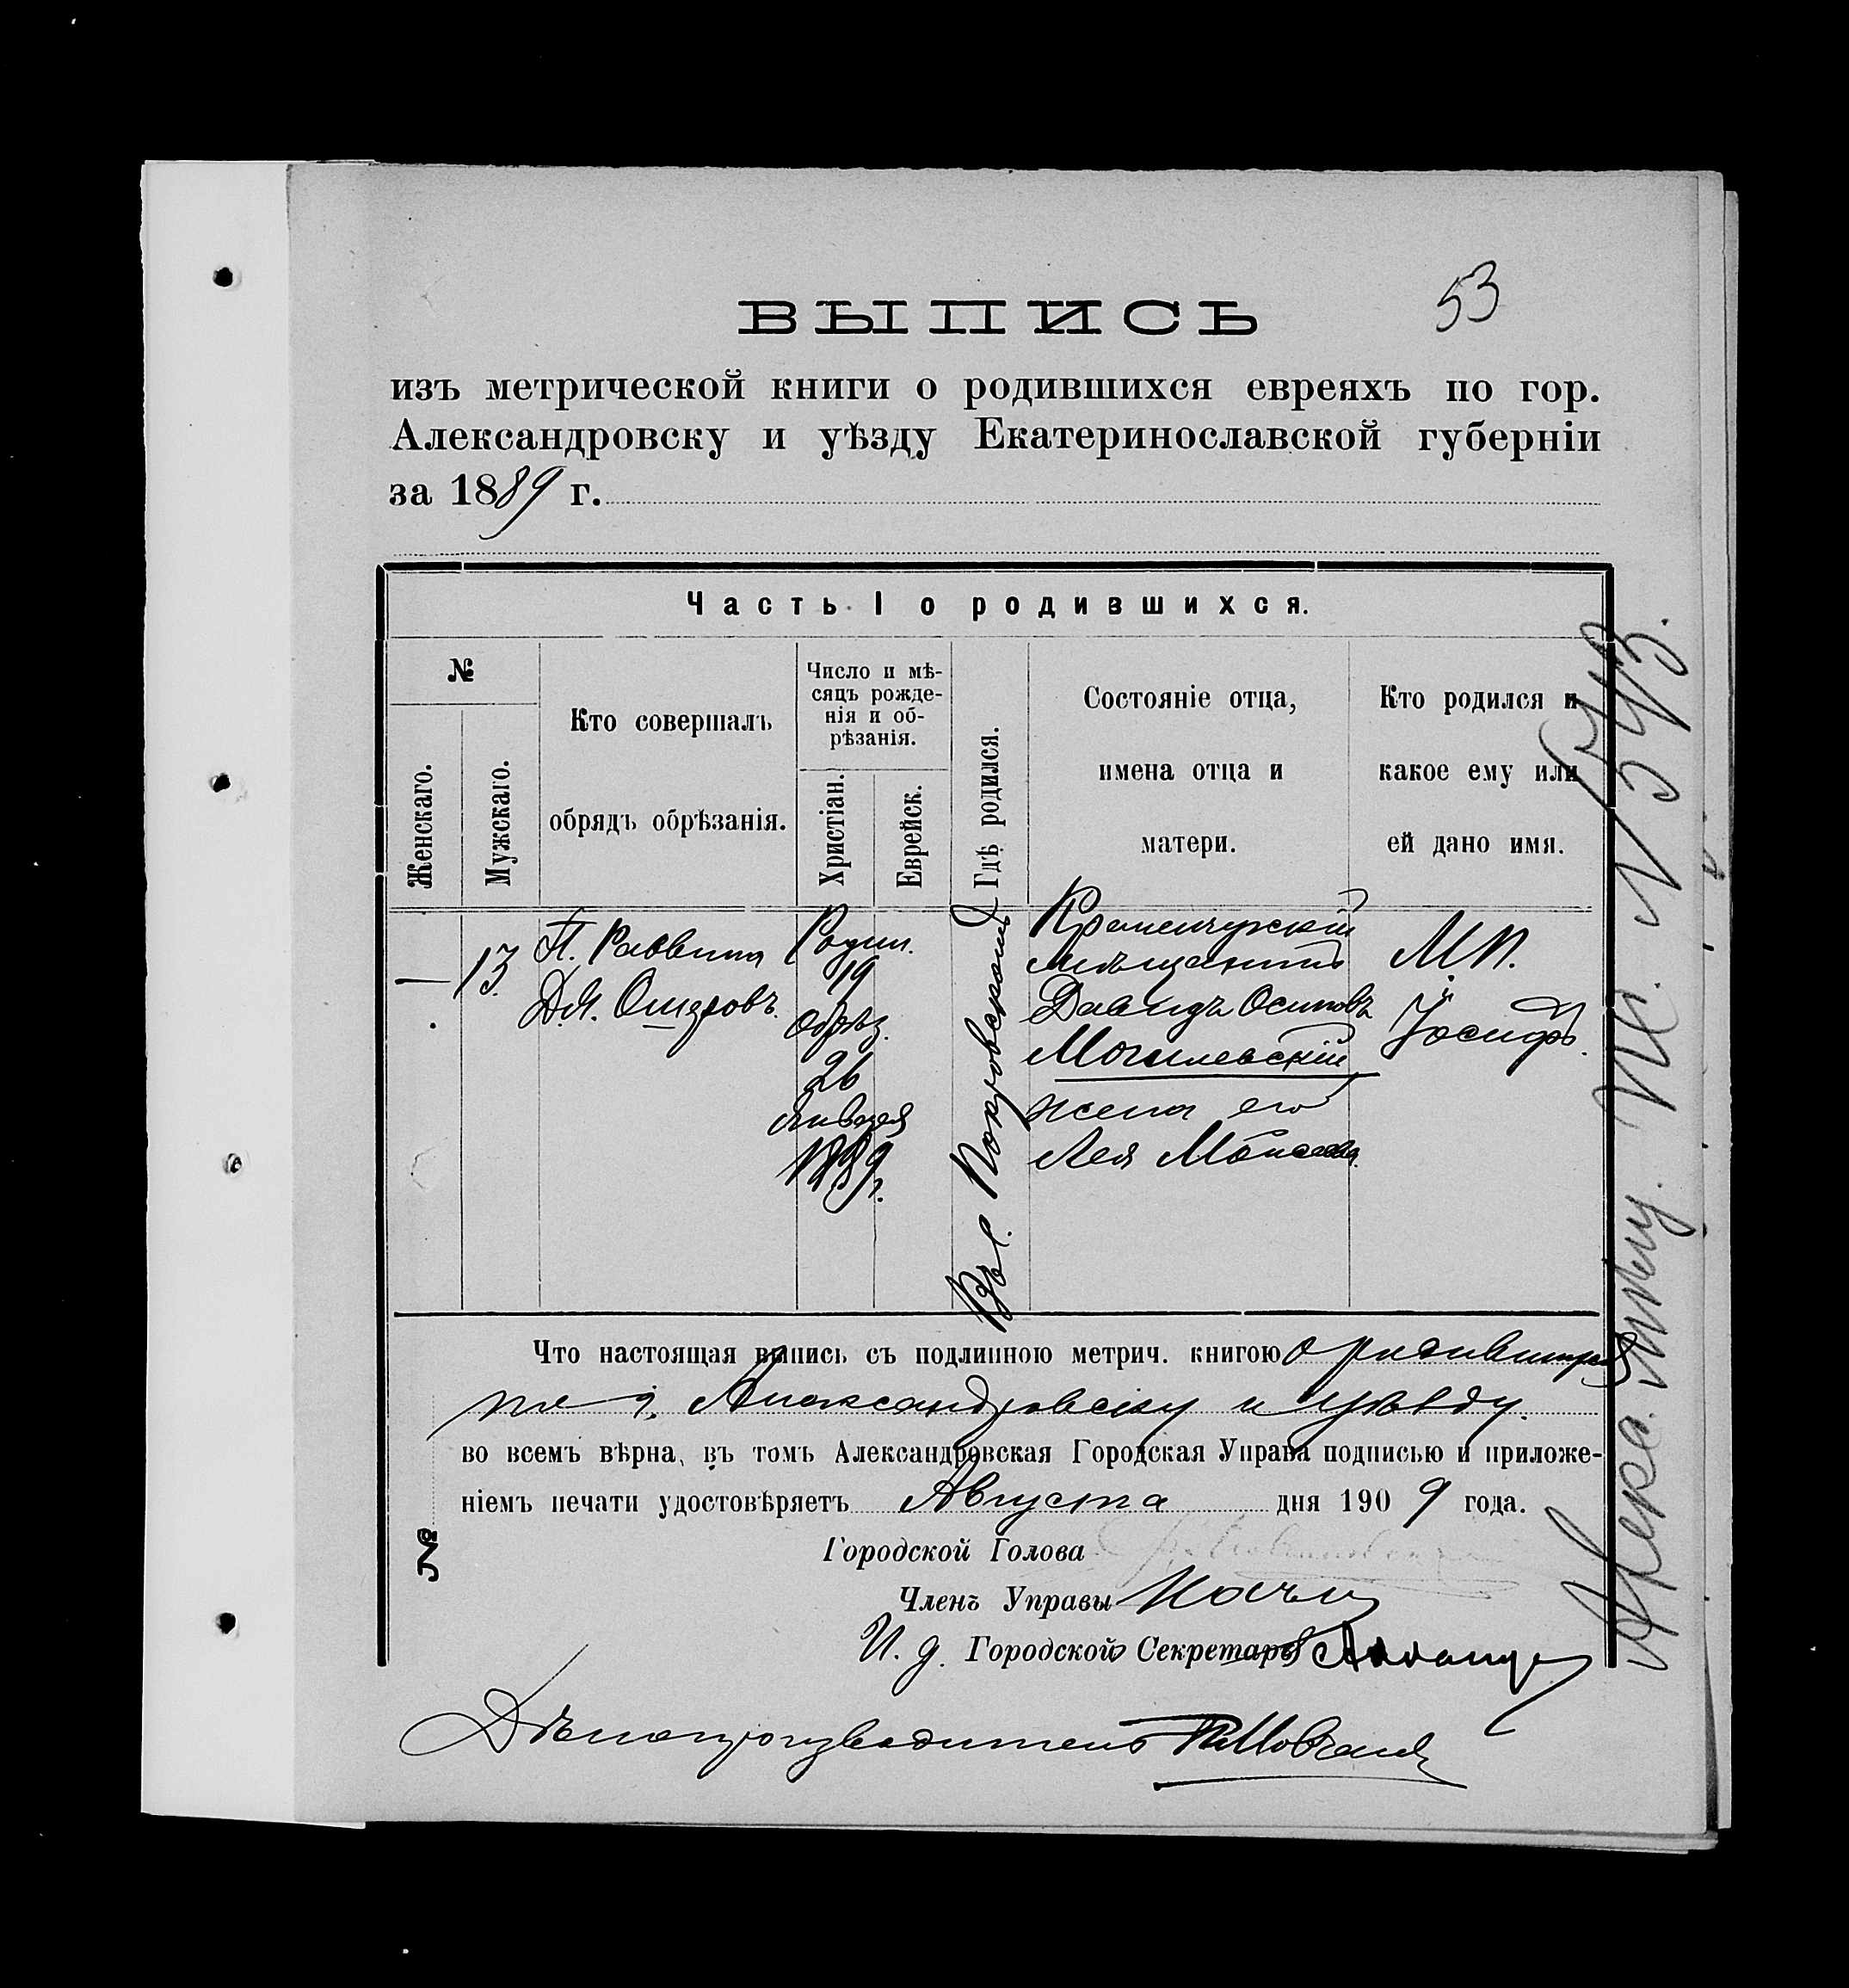 53
ВЫПИСЬ
изъ метрической книги о родившихся евреяхъ по гор.
Александровску и уѣзду Екатеринославской губерніи
за 1889 г.
Часть I о родившихся.
№
Женскаго.
Мужскаго.
Кто совершалъ
обрядъ обрѣзанія.
Число и мѣ-
сяцъ рожде-
нія и об-
рѣзанія.
Христіан.
Еврейск.
Гдѣ родился.
Состояніе отца,
имена отца и
матери.
Кто родился и
какое ему или
ей дано имя.
—
13
П. Раввина
Д.Я. Ошеровъ.
Родил.
19
обрѣз.
26
Января
1889 г.
Въ с. Покровскомъ
Кременчугскій
мѣщанинъ
Давидъ Осиповъ
Могилевскій
жена его
Лея Моисеева.
М.П.
Іосифъ.
Что настоящая выпись съ подлинною метрич. книгою о родившихся
по г. Александровску и уѣзду.
во всемъ вѣрна, въ томъ Александровская Городская Управа подписью и приложе-
ніемъ печати удостовѣряетъ Августа дня 1909 года.
№
Городской Голова
Членъ Управы
И. д. Городской Секретарь
Дѣлопроизводитель